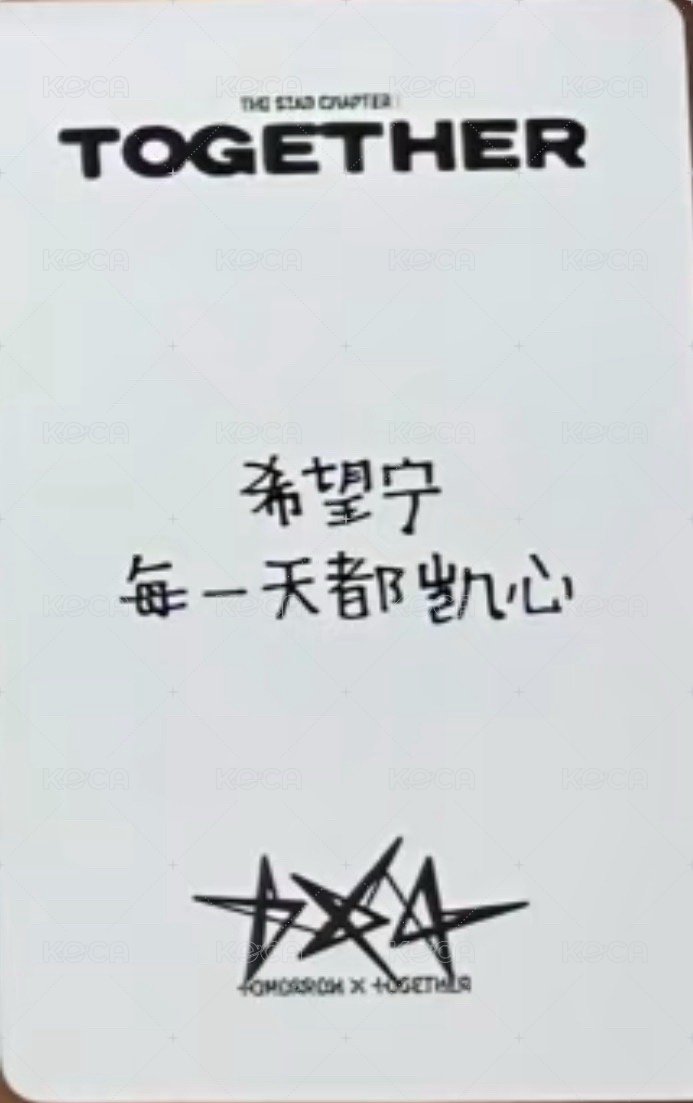 THE STAR CHAPTER :
TOGETHER
希望宁
每一天都凯心
TOMORROW X TOGETHER
KOCA